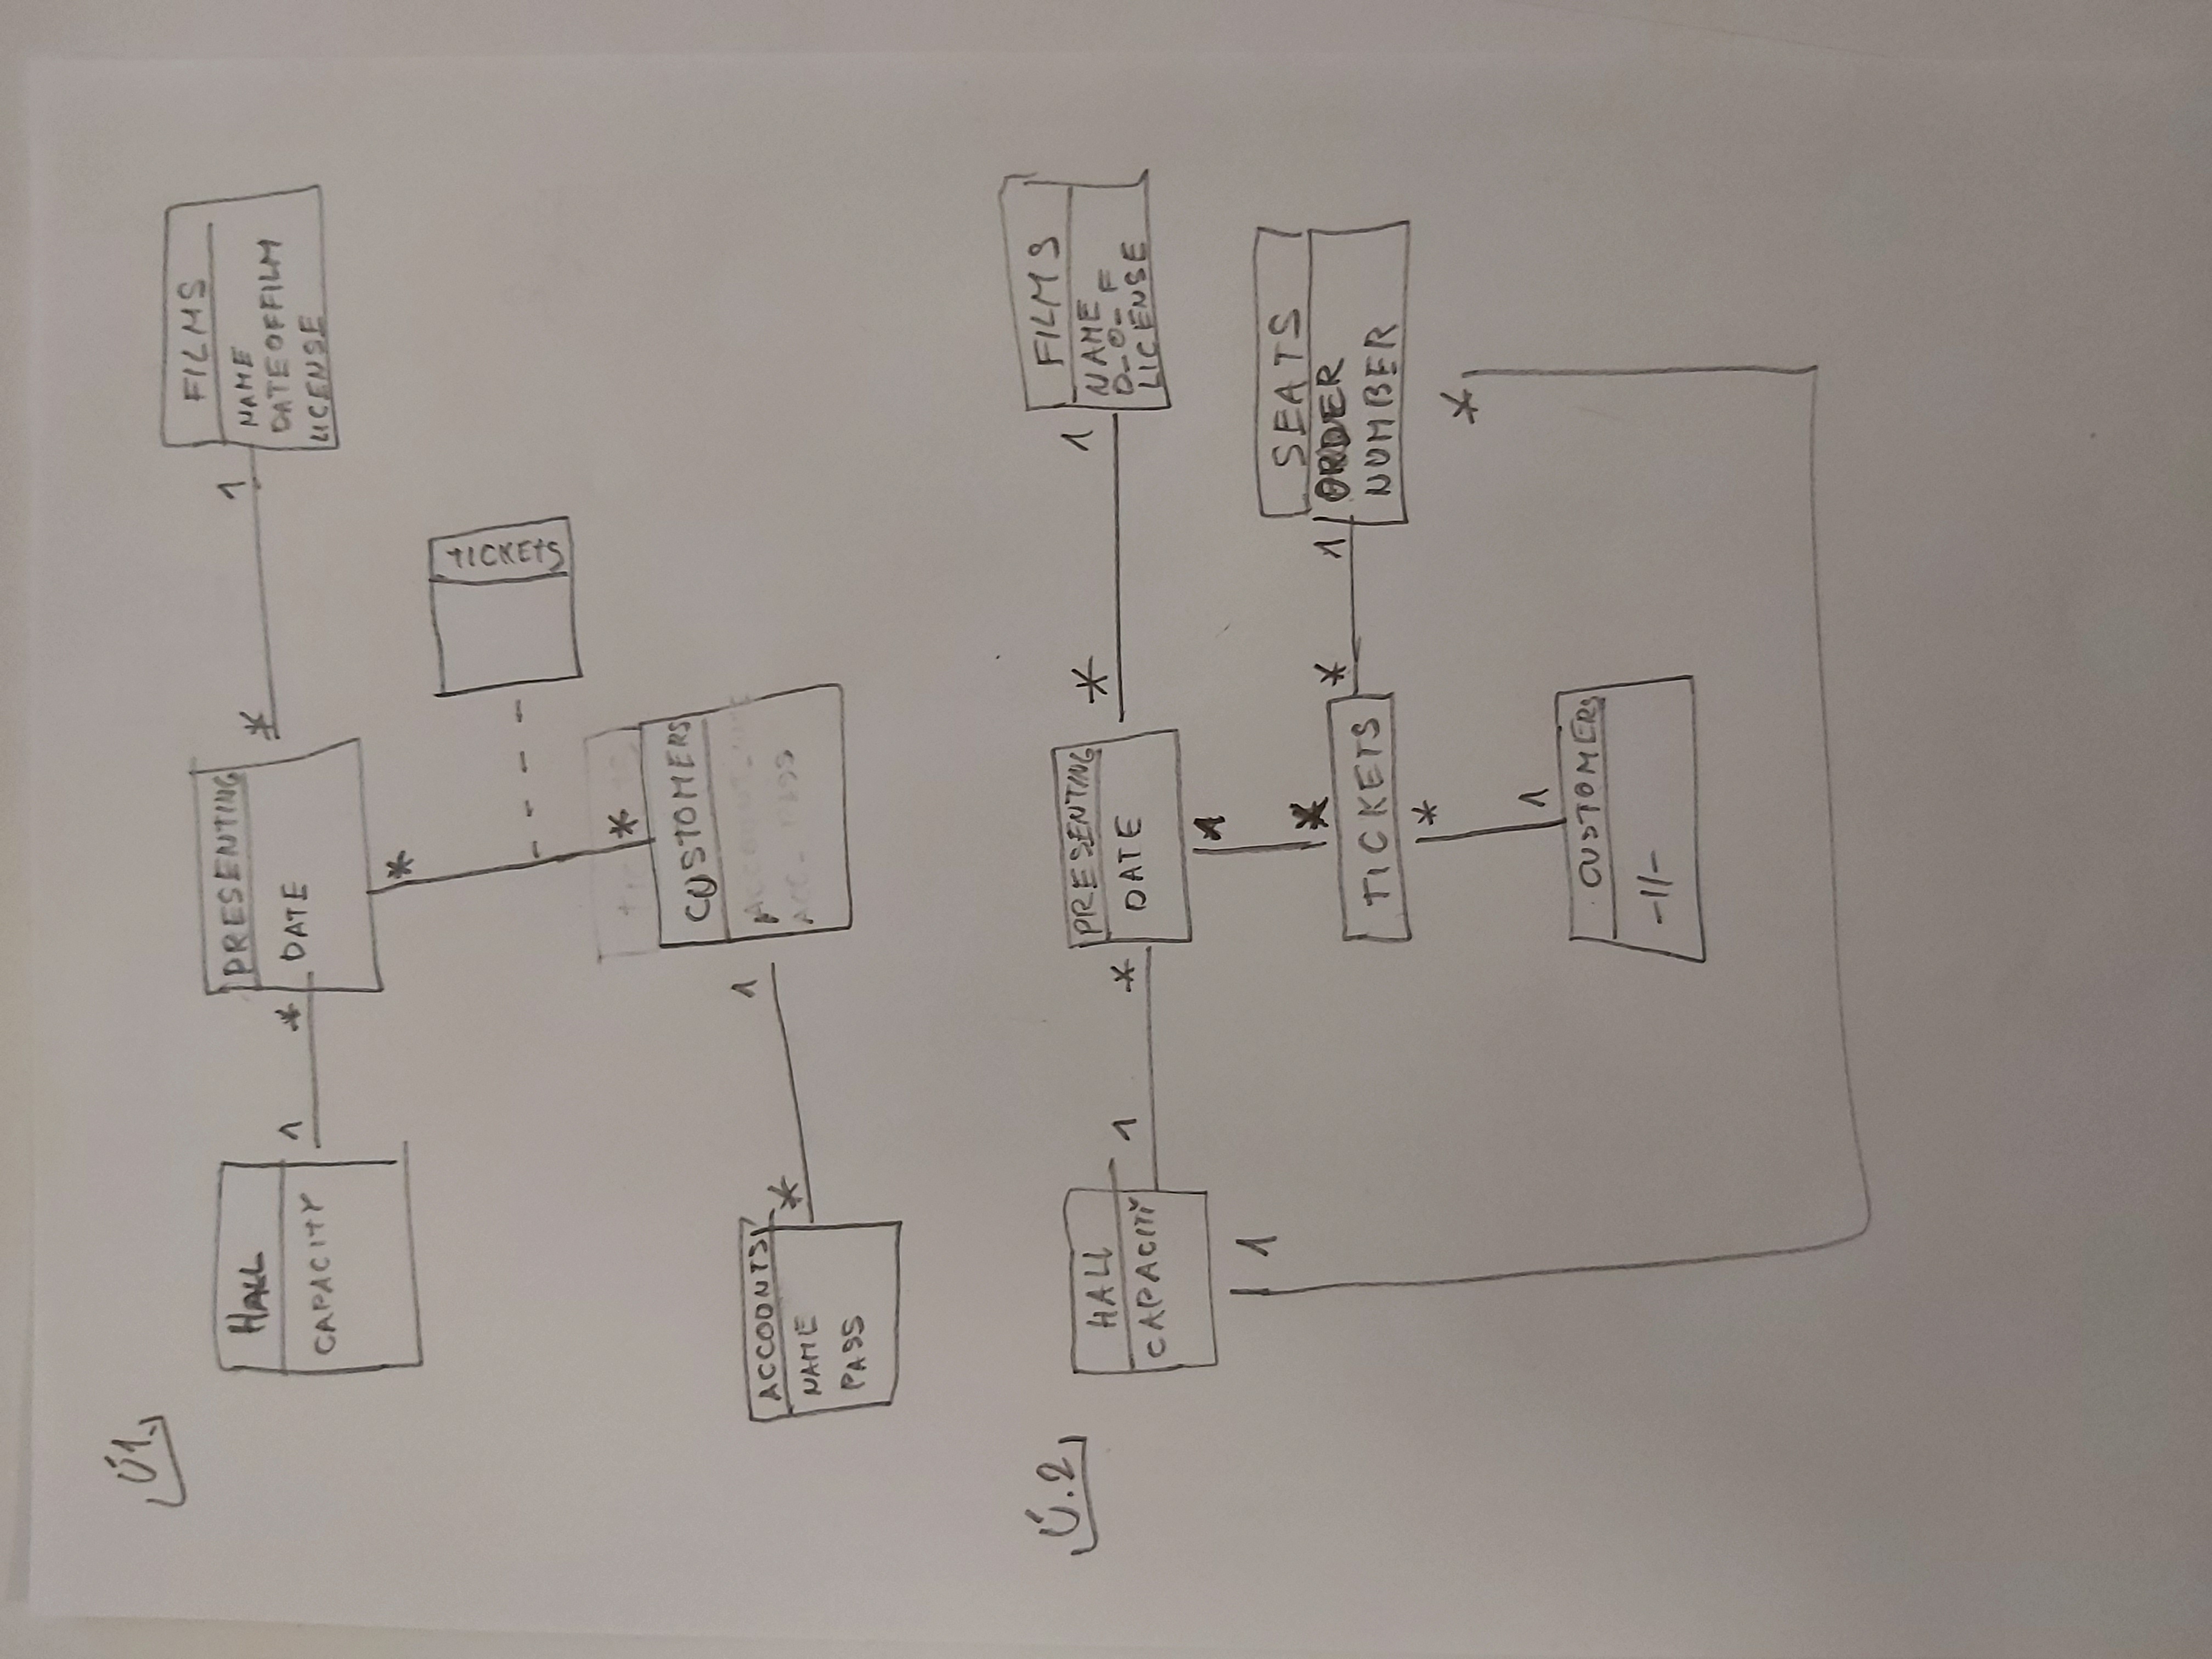 Ú1.
HALL
CAPACITY
1
*
PRESENTING
DATE
*
1
FILMS
NAME
DATEOFFILM
LICENSE
*
TICKETS
*
CUSTOMERS
ACC_ PASS
1
*
ACCOUNTS
NAME
PASS
Ú.2
HALL
CAPACITY
1
*
PRESENTING
DATE
*
1
FILMS
NAME
D_O_F
LICENSE
1
1
*
TICKETS
*
1
SEATS
ORDER
NUMBER
*
*
1
CUSTOMERS
-//-